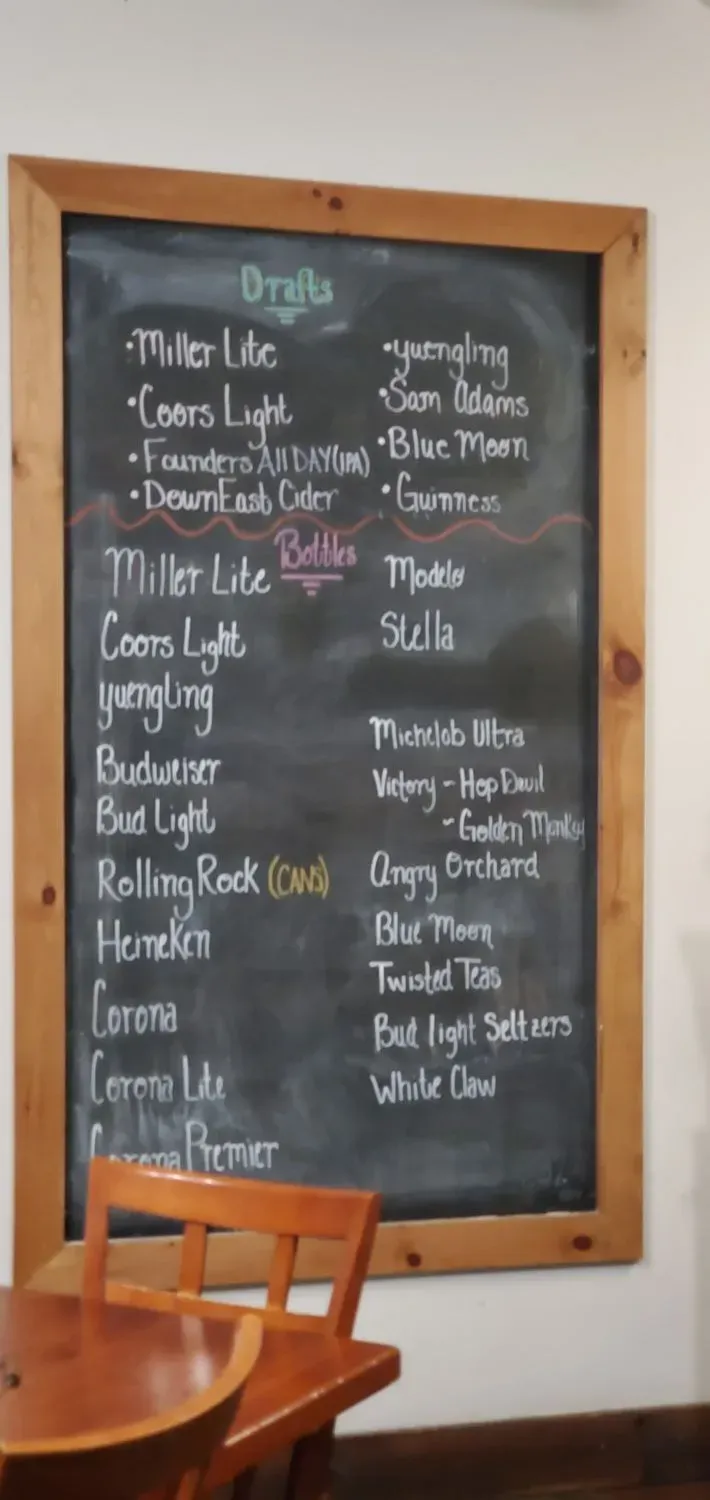 Drafts
•Miller Lite
•Coors Light
•Founders All DAY(IPA)
•DownEast Cider
•yuengling
•Sam Adams
•Blue Moon
•Guinness
Bottles
Miller Lite
Coors Light
yuengling
Budweiser
Bud Light
Rolling Rock (CANS)
Heineken
Corona
Corona Lite
Corona Premier
Modelo
Stella
Michelob Ultra
Victory - Hop Devil
- Golden Monkey
Angry Orchard
Blue Moon
Twisted Teas
Bud light Seltzers
White Claw